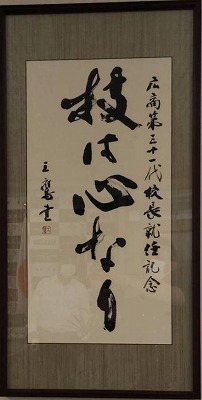 広商第三十一代校長就任記念
技は心なり
玉鳳書